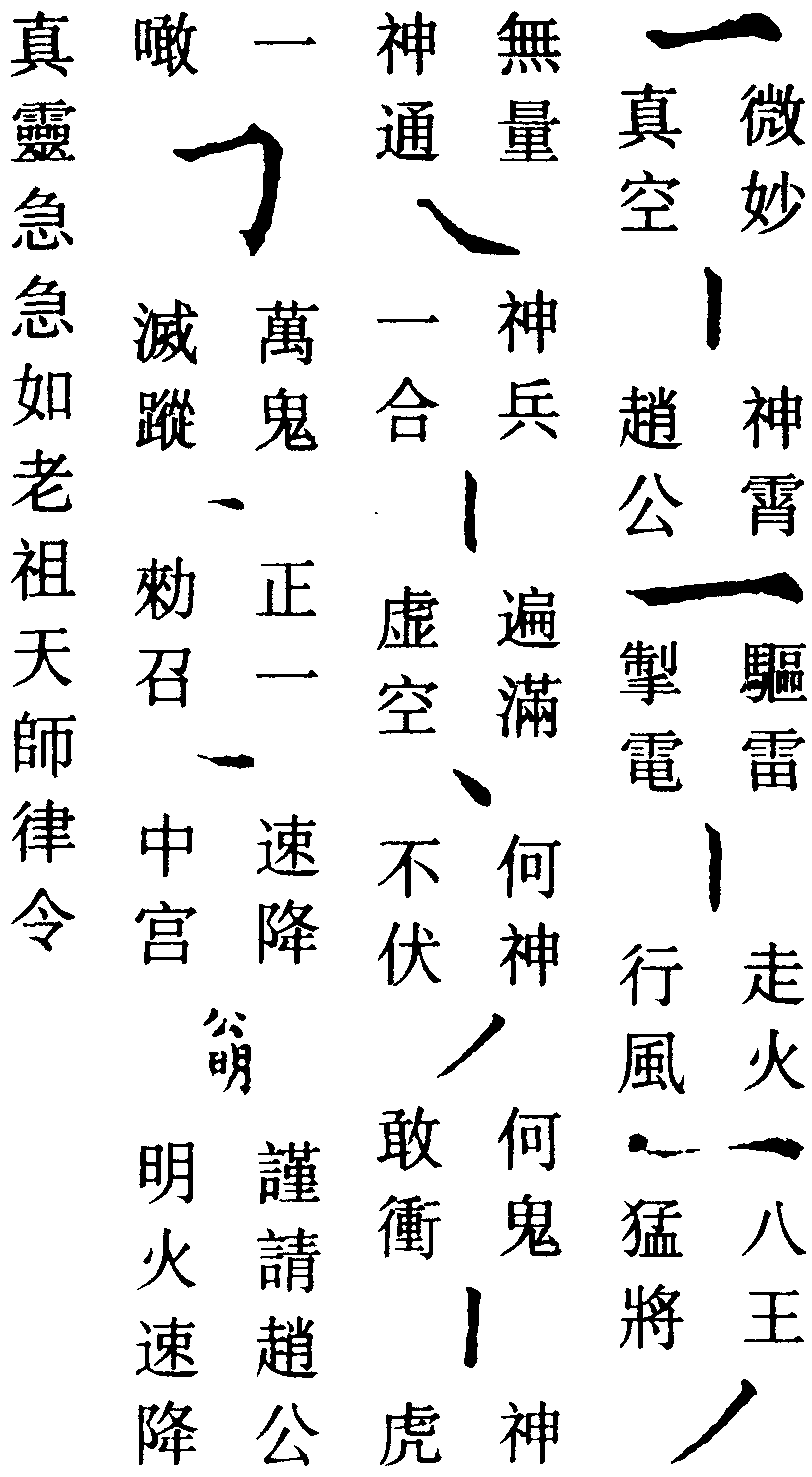 微妙真空
神霄趙公
驅雷掣電
走火行風
八王猛將
無量神通
神兵一合
遍滿虚空
何神不伏
何鬼敢衝
神虎
一噉
萬鬼滅蹤
正一勑召
速降中宫
公明
謹請趙公
明火速降
真靈急急如老祖天師律令